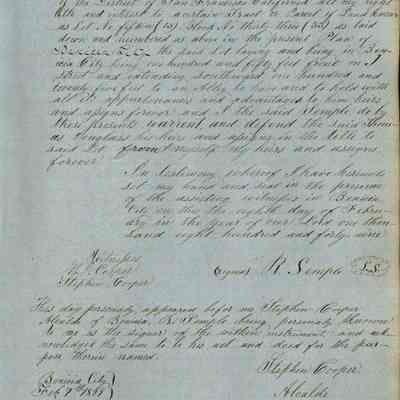 of the District of San Francisco California all my right
title and interest to a certain Tract or Parcel of Land known
as Lot No fifteen (15) Block No thirty three (33) as laid
down and numbered as above in the present Plan of
Benicia City the said lot laying and being in Ben
icia City being one hundred and fifty feet front on I
street and extending Southward one hundred and
twenty five feet to an Alley to have and to hold with
all its appurtenances and advantages to him heirs
and assigns forever and I the said Semple do by
these presents warrent and defend the said Thom
as Douglass his heirs and assigns in the title to
said Lot from myself my heirs and assigns
forever
In testimony whereof I have hereunto
set my hand and seal in the presence
of the assisting witnesses in Benicia
City on this the eighth day of Febru
ary in the year of our Lord one thou
sand eight hundred and forty nine
Witnesses
Cooper
Stephen Cooper
Signed R. Semple L.S.
This day personaly appeared before me Stephen Cooper
Alcalde of Benicia, R. Semple being personaly known
to me as the signer of the within instrument and ack
nowledges the same to be his act and deed for the pur
pose therein named.
Stephen Cooper
Alcalde
Benicia City